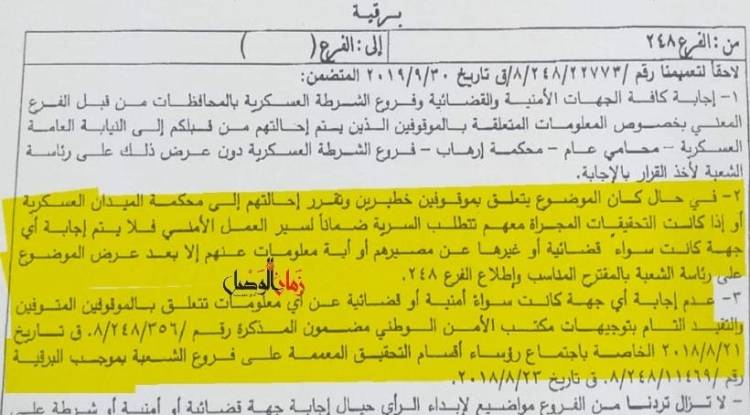 برقية
من: الفرع ٢٤٨ إلى: الفرع ( )
لاحقاً لتعميمنا رقم /٨/٢٤٨/٢٢٧٧٣/ق تاريخ ٢٠١٩/٩/٣٠ المتضمن:
١- إجابة كافة الجهات الأمنية والقضائية وفروع الشرطة العسكرية بالمحافظات من قبل الفرع
المعني بخصوص المعلومات المتعلقة بالموقوفين الذين يتم إحالتهم من قبلكم إلى النيابة العامة
العسكرية – محامي عام – محكمة إرهاب – فروع الشرطة العسكرية دون عرض ذلك على رئاسة
الشعبة لأخذ القرار بالإجابة.
٢- في حال كان الموضوع يتعلق بموقوفين خطيرين وتقرر إحالتهم إلى محكمة الميدان العسكرية
أو إذا كانت التحقيقات المجراة معهم تتطلب السرية ضماناً لسير العمل الأمني فلا يتم إجابة أي
جهة كانت سواء قضائية أو غيرها عن مصيرهم أو أية معلومات عنهم إلا بعد عرض الموضوع
على رئاسة الشعبة بالمقترح المناسب وإطلاع الفرع ٢٤٨.
زمان الوصل
٣- عدم إجابة أي جهة كانت سواءً أمنية أو قضائية عن أي معلومات تتعلق بالموقوفين المتوفين
والتقيد التام بتوجيهات مكتب الأمن الوطني مضمون المذكرة رقم /٨/٢٤٨/٣٥٦. ق تاريخ
٢٠١٨/٨/٢١ الخاصة باجتماع رؤساء أقسام التحقيق المعممة على فروع الشعبة بموجب البرقية
رقم /٨/٢٤٨/١١٤٦٩. ق تاريخ ٢٠١٨/٨/٢٣.
- لا تزال تردنا من الفروع مواضيع لإبداء الرأي حيال إجابة جهة قضائية أو أمنية أو شرطة على